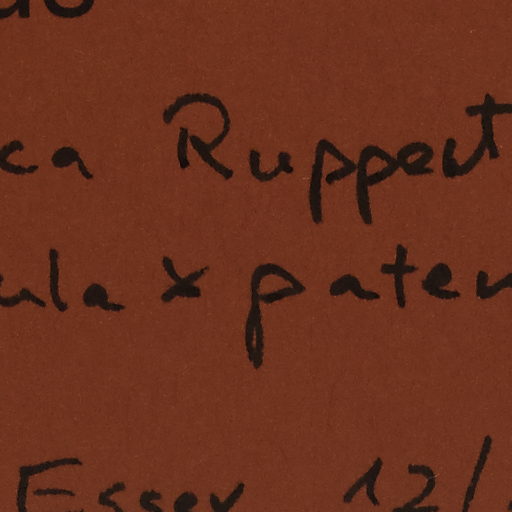 ca Ruppert
ula x paten
Esser 12/